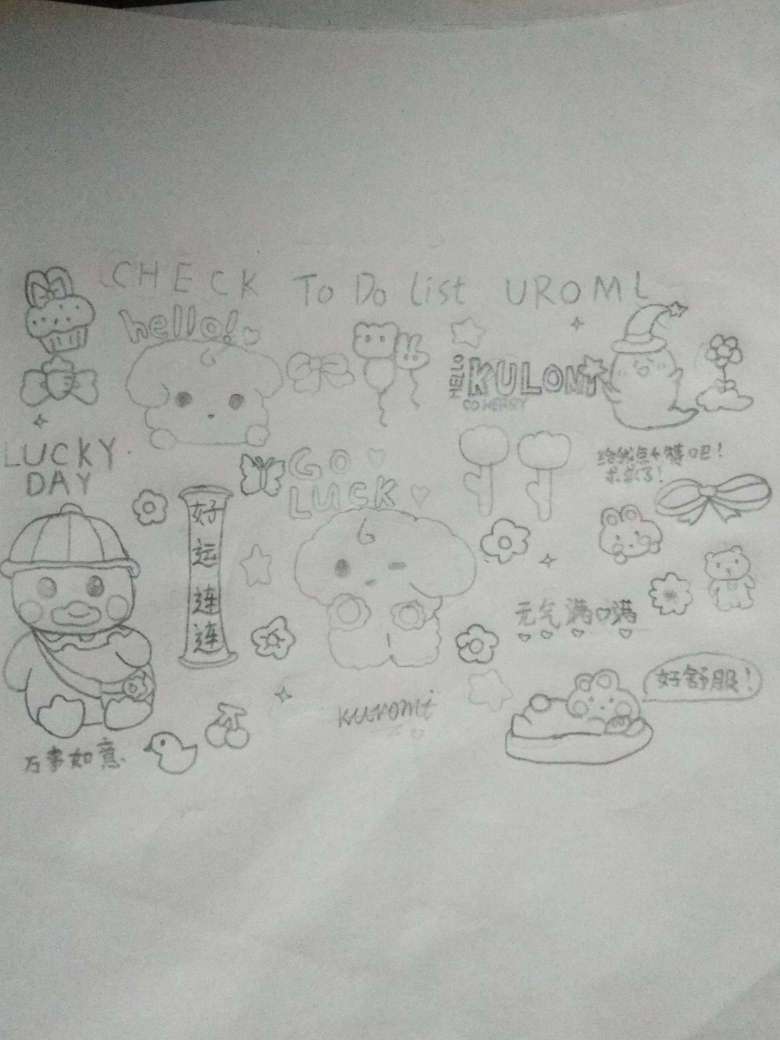 CHECK To Do list UROML
hello!
HELLO
KULOMI
LUCKY
DAY
GO
LUCK
给我点个赞吧!
求求了!
好
运
连
连
元气满满
kuromi
好舒服!
万事如意